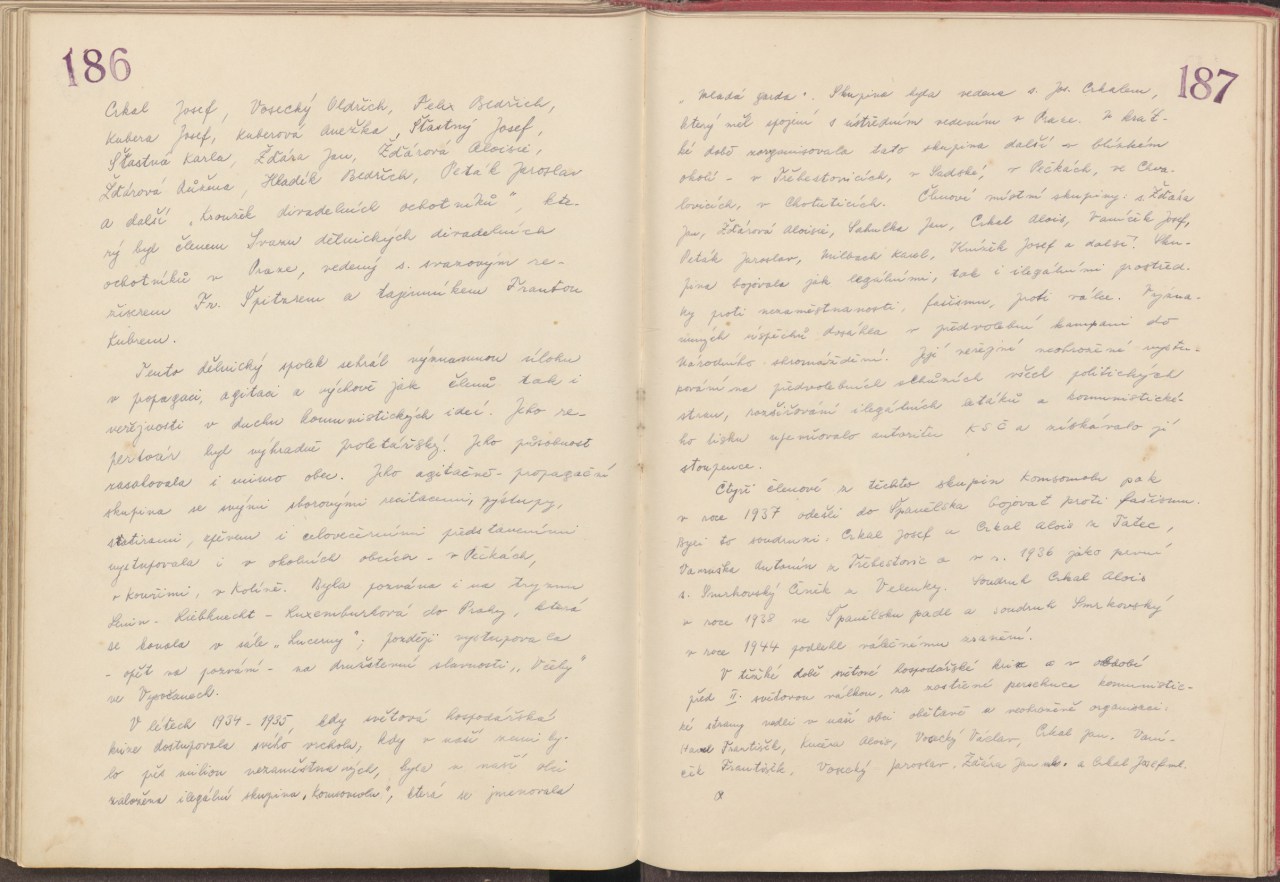 186
Crkal Josef, Vosecký Oldřich, Felix Bedřich,
Kubera Josef, Kuberová Anežka, Šťastný Josef,
Šťastná Karla, Žďára Jan, Žďárová Aloisie,
Žďárová Růžena, Hladík Bedřich, Peták Jaroslav
a další „Kroužek divadelních ochotníků", kte-
rý byl členem Svazu dělnických divadelních
ochotníků v Praze, vedený s. svazovým re-
žiserem Fr. Špitzrem a tajemníkem Frantou
Kubrem.
Tento dělnický spolek sehrál významnou úlohu
v propagaci, agitaci a výchově jak členů tak i
veřejnosti v duchu komunistických ideí. Jeho re-
pertoár byl výhradně proletářský! Jeho působnost
zasahovala i mimo obec. Jeho agitačně-propagační
skupina se svými sborovými recitacemi, výstupy,
satirami, zpěvem i celovečerními představeními
vystupovala i v okolních obcích - v Pečkách,
v Kouřimi, v Kolíně. Byla pozvána i na tryznu
Lenin - Liebknecht - Luxemburková do Prahy, která
se konala v sále „Lucerny"; později vystupovala
- opět na pozvání - na družstevní slavnosti „Včely"
ve Vysočanech.
V létech 1934 - 1935, kdy světová hospodářská
krize dostupovala svého vrcholu, kdy v naší zemi by-
lo přes milion nezaměstnaných, byla v naší obci
založena ilegální skupina „Komsomolu", která se jmenovala
187
„Mladá garda". Skupina byla vedena s. Jos. Crkalem,
který měl spojení s ústředním vedením v Praze. V krát-
ké době zorganisovala tato skupina další v blízkém
okolí - v Třebestovicích, v Sadské, v Pečkách, ve Chva-
lovicích, v Chotuticích. Členové místní skupiny: s. Žďára
Jan, Žďárová Aloisie, Sahulka Jan, Crkal Alois, Vaníček Josef,
Peták Jaroslav, Milbach Karel, Josef a další! Sku-
pina bojovala jak legálními, tak i ilegálními prostřed-
ky proti nezaměstnanosti, fašismu, proti válce. Význa-
mných úspěchů dosáhla v předvolební kampani do
Národního shromáždění. Její veřejné neohrožené vystu-
pování na předvolebních schůzích všech politických
stran, rozšiřování ilegálních letáků a komunistické-
ho tisku upevňovalo autoritu KSČ a získávalo jí
stoupence.
Čtyři členové z těchto skupin Komsomolu pak
v roce 1937 odešli do Španělska bojovat proti fašismu.
Byli to soudruzi: Crkal Josef a Crkal Alois z Tatec,
Antonín z Třebestovic a v r. 1936 jako první
s. Smrkovský Čeněk z Velenky. Soudruh Crkal Alois
v roce 1938 ve Španělsku padl a soudruh Smrkovský
v roce 1944 podlehl válečnému zranění.
V těžké době světové hospodářské krize a v období
před II. světovou válkou, za nesčetné persekuce komunistic-
ké strany vedli v naší obci obětavě a neohroženě organizaci:
František, Kučera Alois, Vosecký Václav, Crkal Jan, Vaní-
ček František, Vosecký Jaroslav, Žďára Jan ml. a Crkal Josef ml.